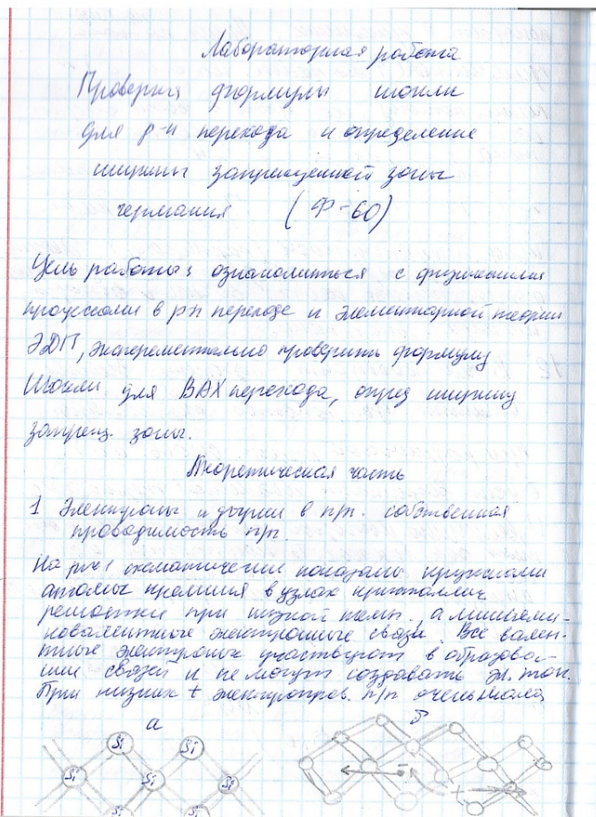 Лабораторная работа
Проверка формулы Шокли
для p-n перехода и определение
ширины запрещённой зоны
германия (Ф-60)
Цель работы: ознакомиться с физическими
процессами в pn переходе и элементарной теории
ЭДП, экспрементально проверить формулу
Шокли для ВАХ перехода, опред ширину
запрещ. зоны.
Теоретическая часть
1 Электроны и дырки в п/п. собственная
проводимость п/п.
На рис1 схематически показаны кружками
атомы кремния в узлах кристаллич
решотки при низкой темп., а линиями-
ковалентные электронные связи. Все вален-
тные электроны участвуют в образова-
нии связей и не могут создавать эл. ток.
При низких t электропров. п/п очень мала
а б
Si Si
Si Si Si
- +